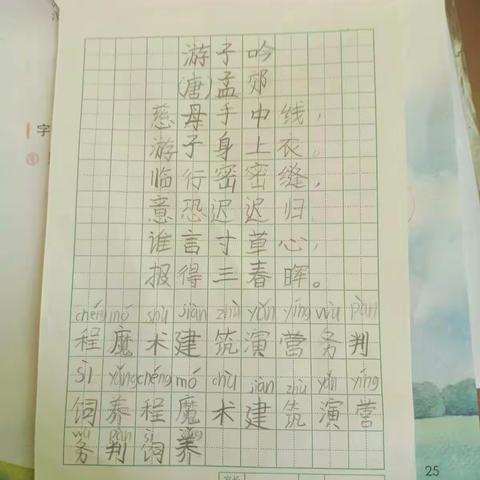 游子吟
(唐)孟郊
慈母手中线,
游子身上衣。
临行密密缝,
意恐迟迟归。
谁言寸草心,
报得三春晖。
chéng mó shù jiàn zhù yǎn yíng wù pàn
程魔术建筑演营务判
sì yǎng chéng mó shù jiàn zhù yǎn yíng
饲养程魔术建筑演营
wù pàn sì yǎng
务判饲养
25
字